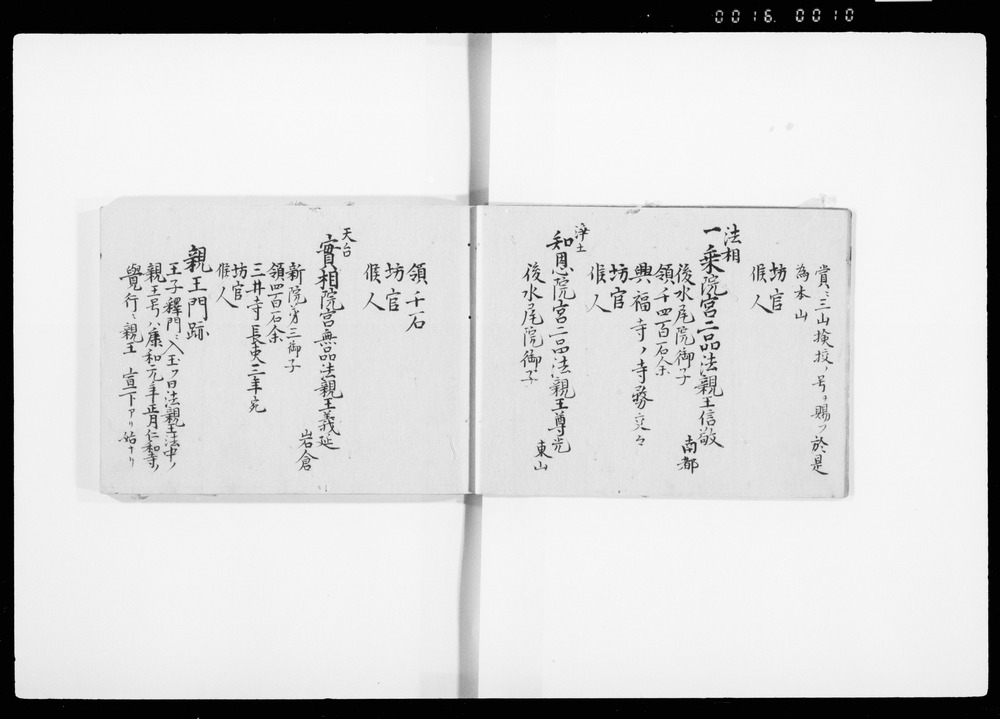 0016 0010
賞ニ三山検挍ノ号ヲ賜フ於是
為本山
坊官
候人
法相
一乗院宮二品法親王信敬
南都
後水尾院御子
領千四百石余
興福寺ノ寺務交々
坊官
候人
浄土
知恩院宮二品法親王尊光
東山
後水尾院御子
領千石
坊官
候人
天台
實相院宮無品法親王義延
岩倉
新院第三御子
領四百石余
三井寺長吏三年宛
坊官
候人
親王門跡
王子釋門ニ入玉フ曰法親王法中ノ
親王号ハ康和元年正月仁和寺ノ
覺行ニ親王宣下アリ始ナリ